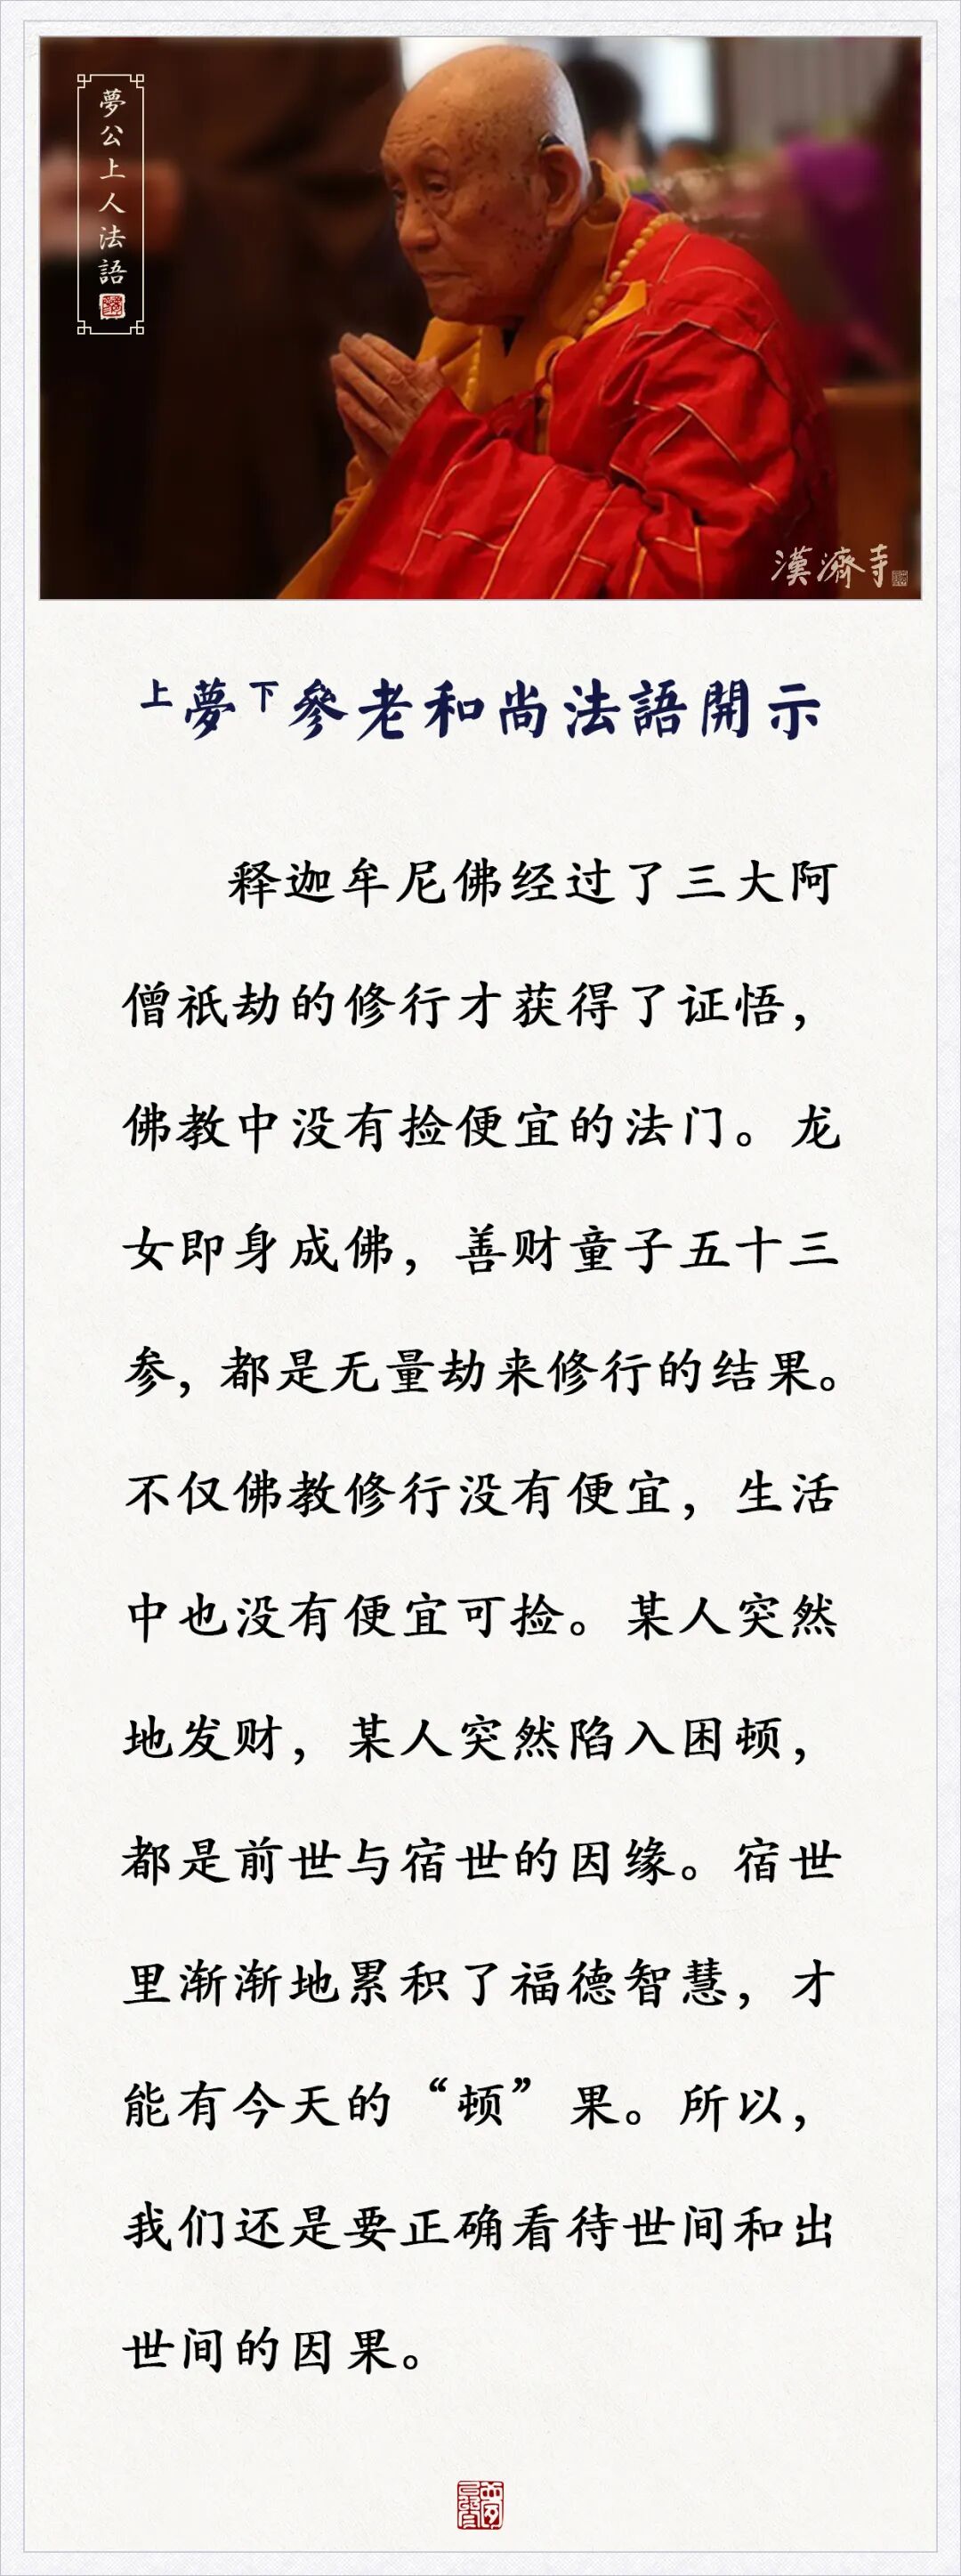 夢公上人法語
漢濟寺
上夢下參老和尚法語開示
释迦牟尼佛经过了三大阿
僧祇劫的修行才获得了证悟，
佛教中没有捡便宜的法门。龙
女即身成佛，善财童子五十三
参，都是无量劫来修行的结果。
不仅佛教修行没有便宜，生活
中也没有便宜可捡。某人突然
地发财，某人突然陷入困顿，
都是前世与宿世的因缘。宿世
里渐渐地累积了福德智慧，才
能有今天的“顿”果。所以，
我们还是要正确看待世间和出
世间的因果。